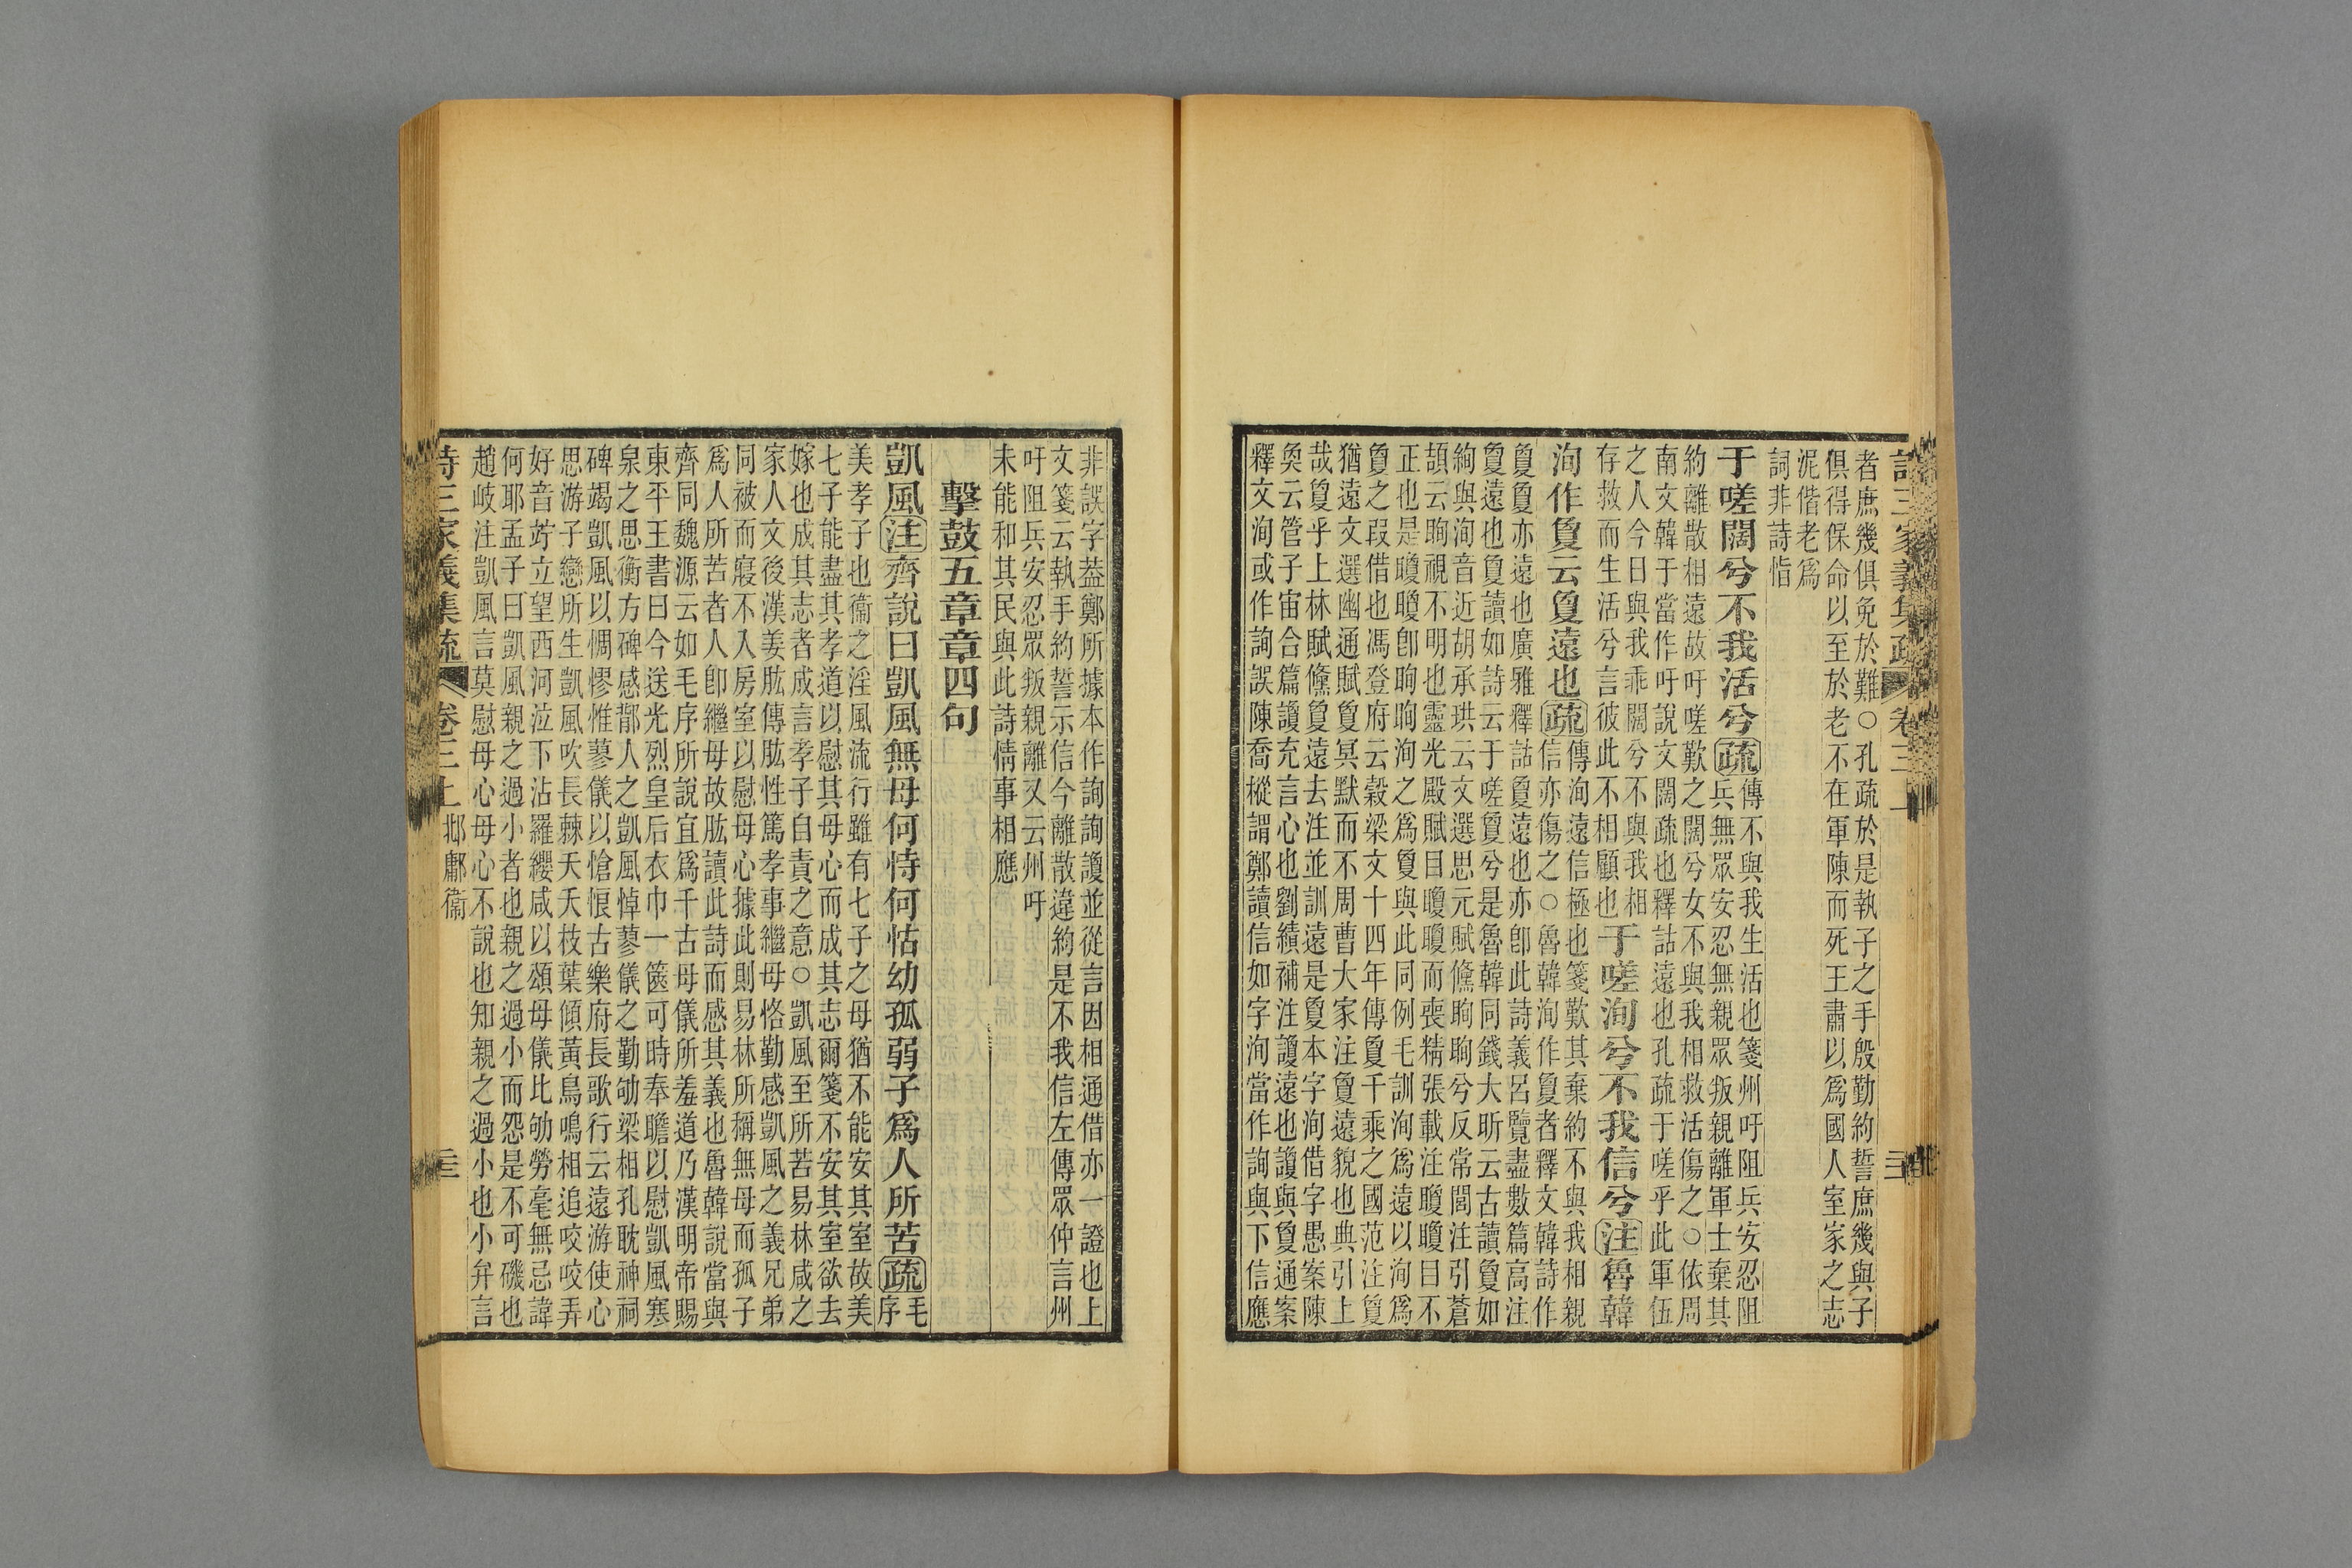 詩三家義集疏 卷三上
者庶幾俱免於難○孔疏於是執子之手殷勤約誓庶幾與子
俱得保命以至於老不在軍陳而死王肅以爲國人室家之志
泥偕老爲
詞非詩恉
于嗟闊兮不我活兮疏
傳不與我生活也箋州吁阻兵安忍阻
兵無眾安忍無親眾叛親離軍士棄其
約離散相遠故吁嗟歎之闊兮女不與我相救活傷之○依周
南文韓于當作吁說文闊疏也釋詁遠也孔疏于嗟乎此軍伍
之人今日與我乖闊兮不與我相
存救而生活兮言彼此不相顧也
于嗟洵兮不我信兮注魯韓
洵作敻云敻遠也疏
傳洵遠信極也箋歎其棄約不與我相親
信亦傷之○魯韓洵作敻者釋文韓詩作
敻敻亦遠也廣雅釋詁敻遠也亦卽此詩義呂覽盡數篇高注
敻遠也敻讀如詩云于嗟敻兮是魯韓同錢大昕云古讀敻如
絢與洵音近胡承珙云文選思元賦儵眴眴兮反常閭注引蒼
頡云眴視不明也靈光殿賦目矎矎而喪精張載注矎矎目不
正也是矎矎卽眴眴洵之爲敻與此同例毛訓洵爲遠以洵爲
敻之叚借也馮登府云穀梁文十四年傳敻千乘之國范注敻
猶遠文選幽通賦敻冥默而不周曹大家注敻遠貌也典引上
哉敻乎上林賦儵敻遠去注並訓遠是敻本字洵借字愚案陳
奐云管子宙合篇讂充言心也劉績補注讂遠也讂與敻通案
釋文洵或作詢誤陳喬樅謂鄭讀信如字洵當作詢與下信應
非誤字葢鄭所據本作詢詢讂並從言因相通借亦一證也上
文箋云執手約誓示信今離散違約是不我信左傳眾仲言州
吁阻兵安忍眾叛親離又云州吁
未能和其民與此詩情事相應
擊鼓五章章四句
凱風注齊說曰凱風無母何恃何怙幼孤弱子爲人所苦疏
毛
序
美孝子也衞之淫風流行雖有七子之母猶不能安其室故美
七子能盡其孝道以慰其母心而成其志爾箋不安其室欲去
嫁也成其志者成言孝子自責之意○凱風至所苦易林咸之
家人文後漢姜肱傳肱性篤孝事繼母恪勤感凱風之義兄弟
同被而寢不入房室以慰母心據此則易林所稱無母而孤子
爲人所苦者人卽繼母故肱讀此詩而感其義也魯韓說當與
齊同魏源云如毛序所說宜爲千古母儀所羞道乃漢明帝賜
東平王書曰今送光烈皇后衣巾一篋可時奉瞻以慰凱風寒
泉之思衡方碑感鄁人之凱風悼蓼儀之勤劬梁相孔耽神祠
碑竭凱風以惆㥪惟蓼儀以愴悢古樂府長歌行云遠游使心
思游子戀所生凱風吹長棘夭夭枝葉傾黃鳥鳴相追咬咬弄
好音竚立望西河泣下沾羅纓咸以頌母儀比劬勞毫無忌諱
何耶孟子曰凱風親之過小者也親之過小而怨是不可磯也
趙岐注凱風言莫慰母心母心不說也知親之過小也小弁言
詩三家義集疏 卷三上 邶鄘衞